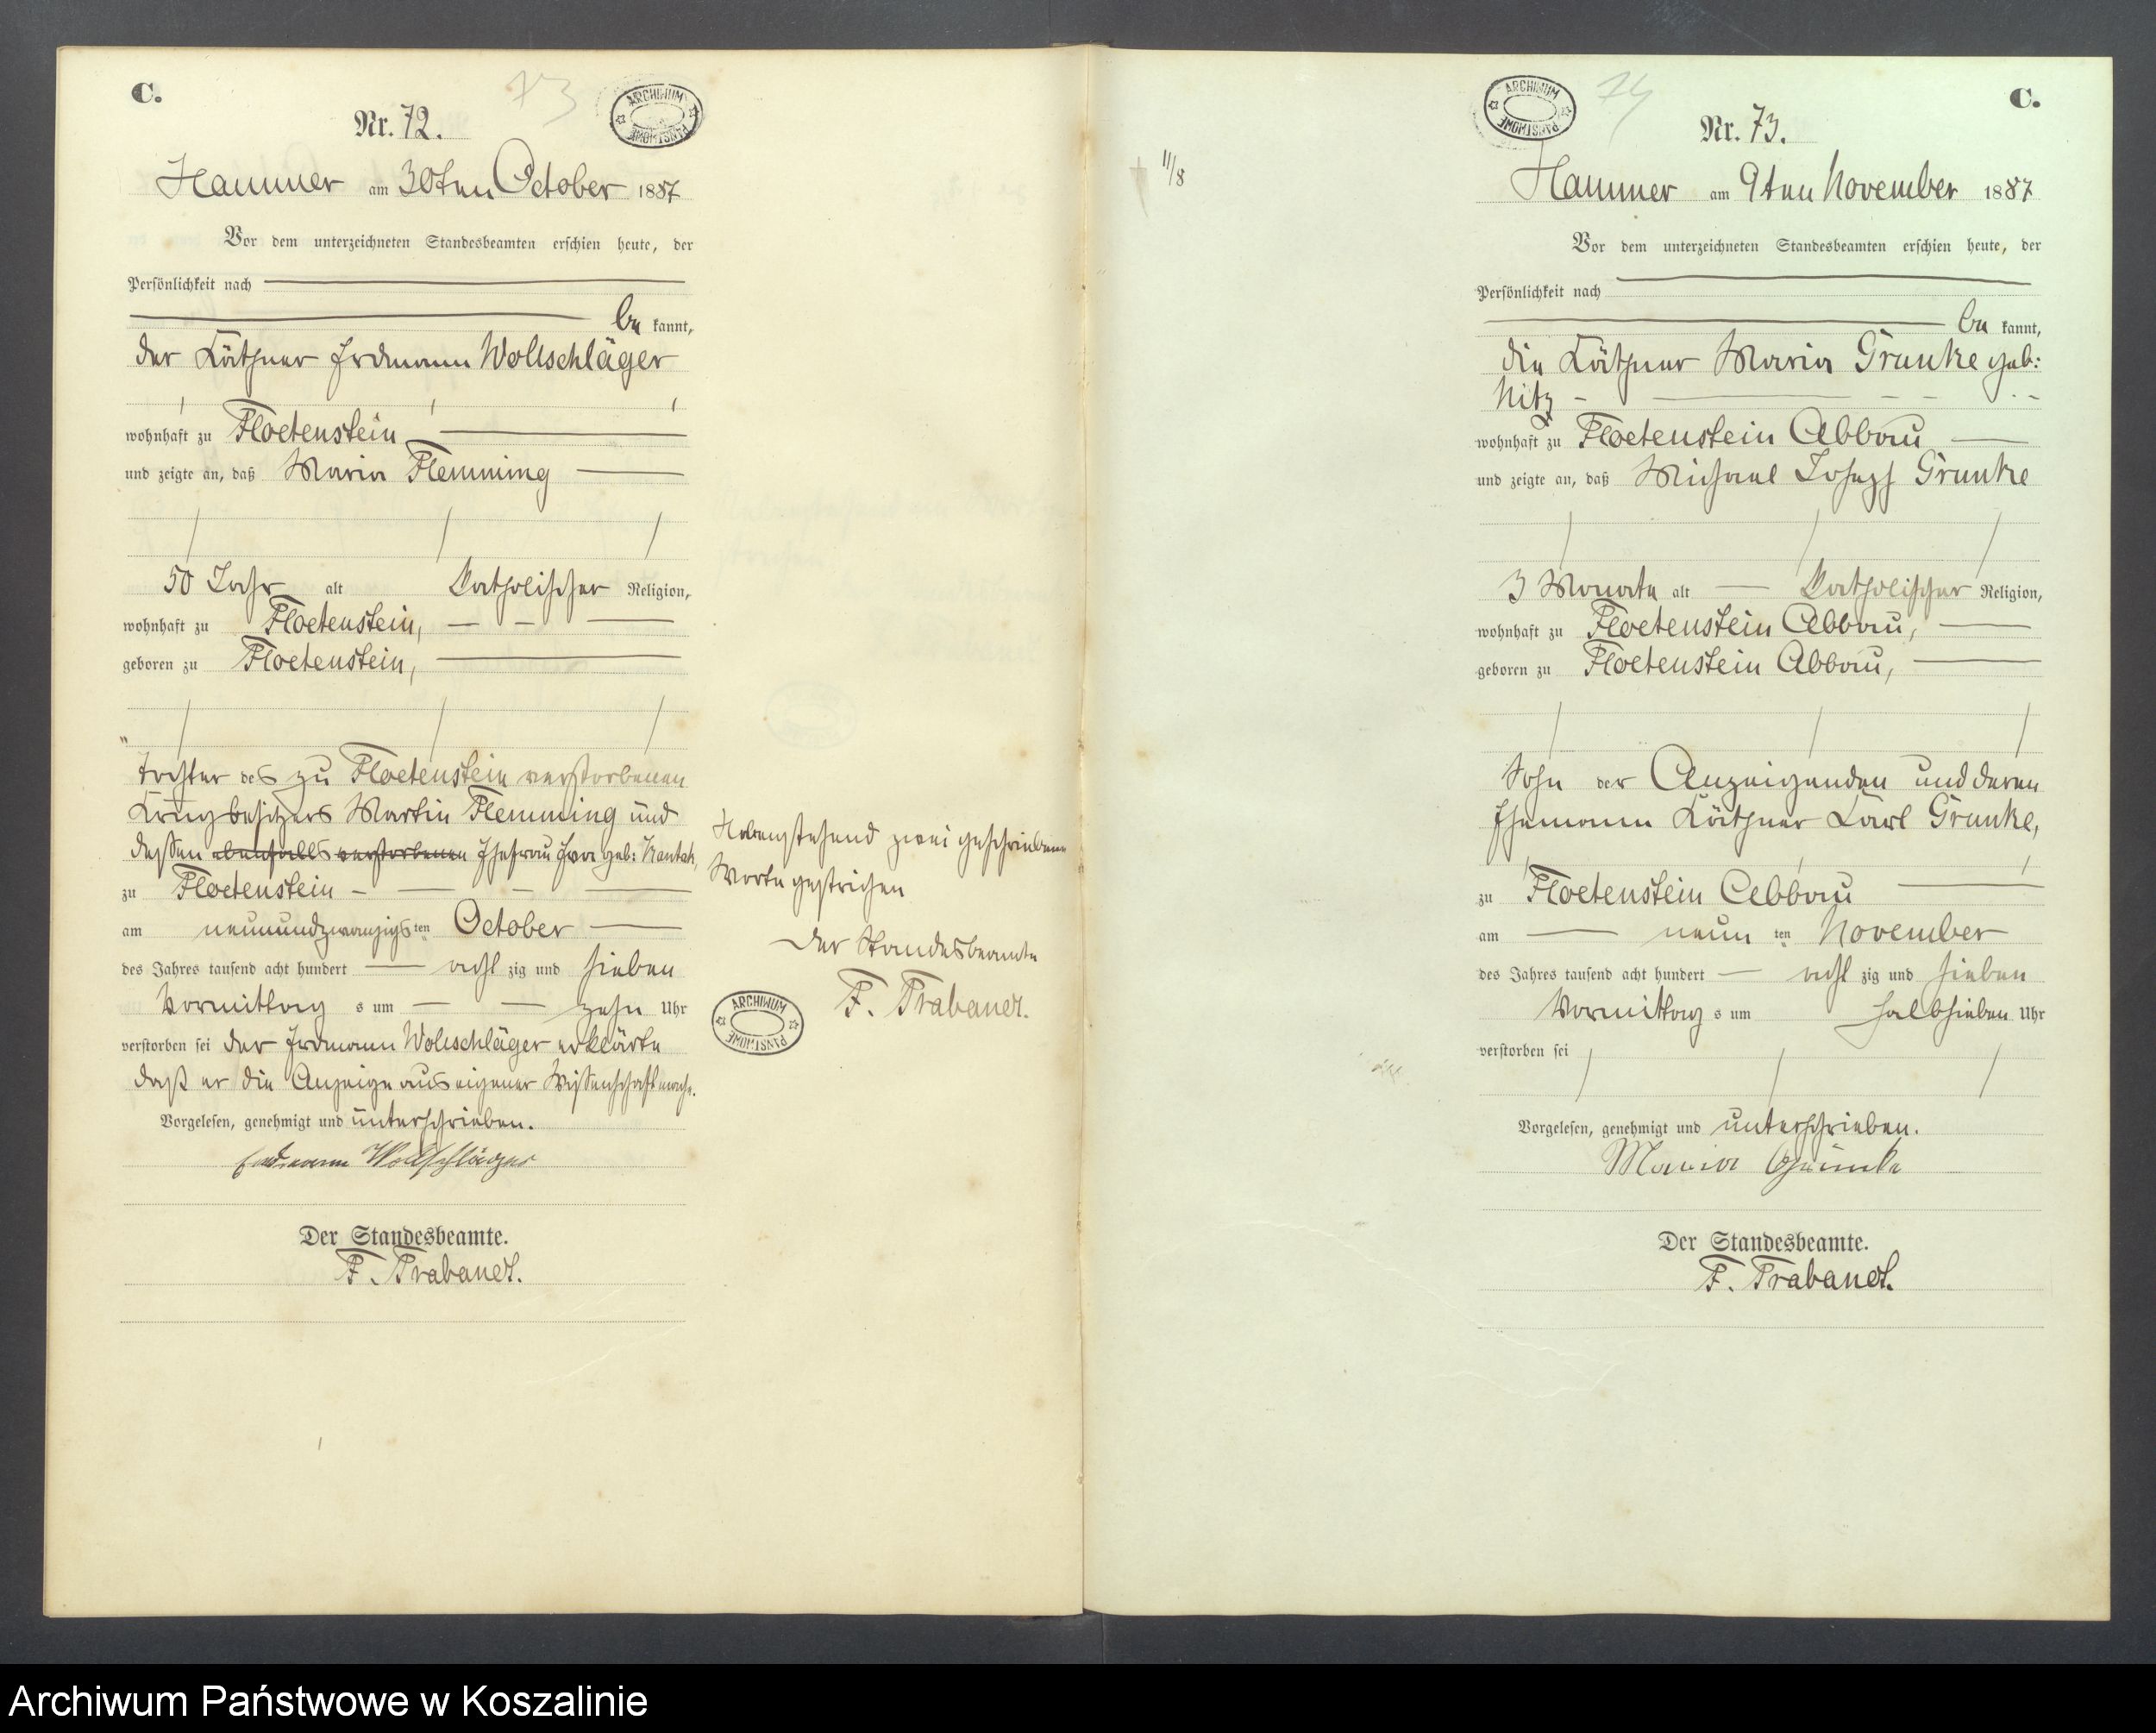 C.
73
ARCHIWUM PAŃSTWOWE
Nr. 72.
Hammer am 30ten October 1887
Vor dem unterzeichneten Standesbeamten erschien heute, der
Persönlichkeit nach
be kannt,
der Käthner Erdmann Wollschläger
wohnhaft zu Floetenstein
und zeigte an, daß Maria Flemming
50 Jahr alt Katholischer Religion,
wohnhaft zu Floetenstein,
geboren zu Floetenstein,
Tochter des zu Floetenstein verstorbenen
Krugbesitzers Martin Flemming und
dessen ebenfalls verstorbenen Ehefrau Eva geb: Kantak,
zu Floetenstein
am neunundzwanzigs ten October
des Jahres tausend acht hundert acht zig und sieben
Vormittag s um zehn Uhr
verstorben sei der Erdmann Wollschläger erklärte
daß er die Anzeige aus eigener Wissenschaft mache.
Vorgelesen, genehmigt und unterschrieben.
Erdmann Wollschläger
Der Standesbeamte.
F. Trabandt.
Nebenstehend zwei geschriebene
Worte gestrichen
Der Standesbeamte
F. Trabandt.
ARCHIWUM PAŃSTWOWE
11/8
ARCHIWUM PAŃSTWOWE
74
C.
Nr. 73.
Hammer am 9ten November 1887
Vor dem unterzeichneten Standesbeamten erschien heute, der
Persönlichkeit nach
be kannt,
die Käthner Maria Grunke geb:
Nitz
wohnhaft zu Floetenstein Abbau
und zeigte an, daß Michael Joseph Grunke
3 Monate alt Katholischer Religion,
wohnhaft zu Floetenstein Abbau,
geboren zu Floetenstein Abbau,
Sohn der Anzeigenden und deren
Ehemann Käthner Carl Grunke,
zu Floetenstein Abbau
am neun ten November
des Jahres tausend acht hundert acht zig und sieben
Vormittag s um halbsieben Uhr
verstorben sei
Vorgelesen, genehmigt und unterschrieben.
Maria Grunke
Der Standesbeamte.
F. Trabandt.
Archiwum Państwowe w Koszalinie